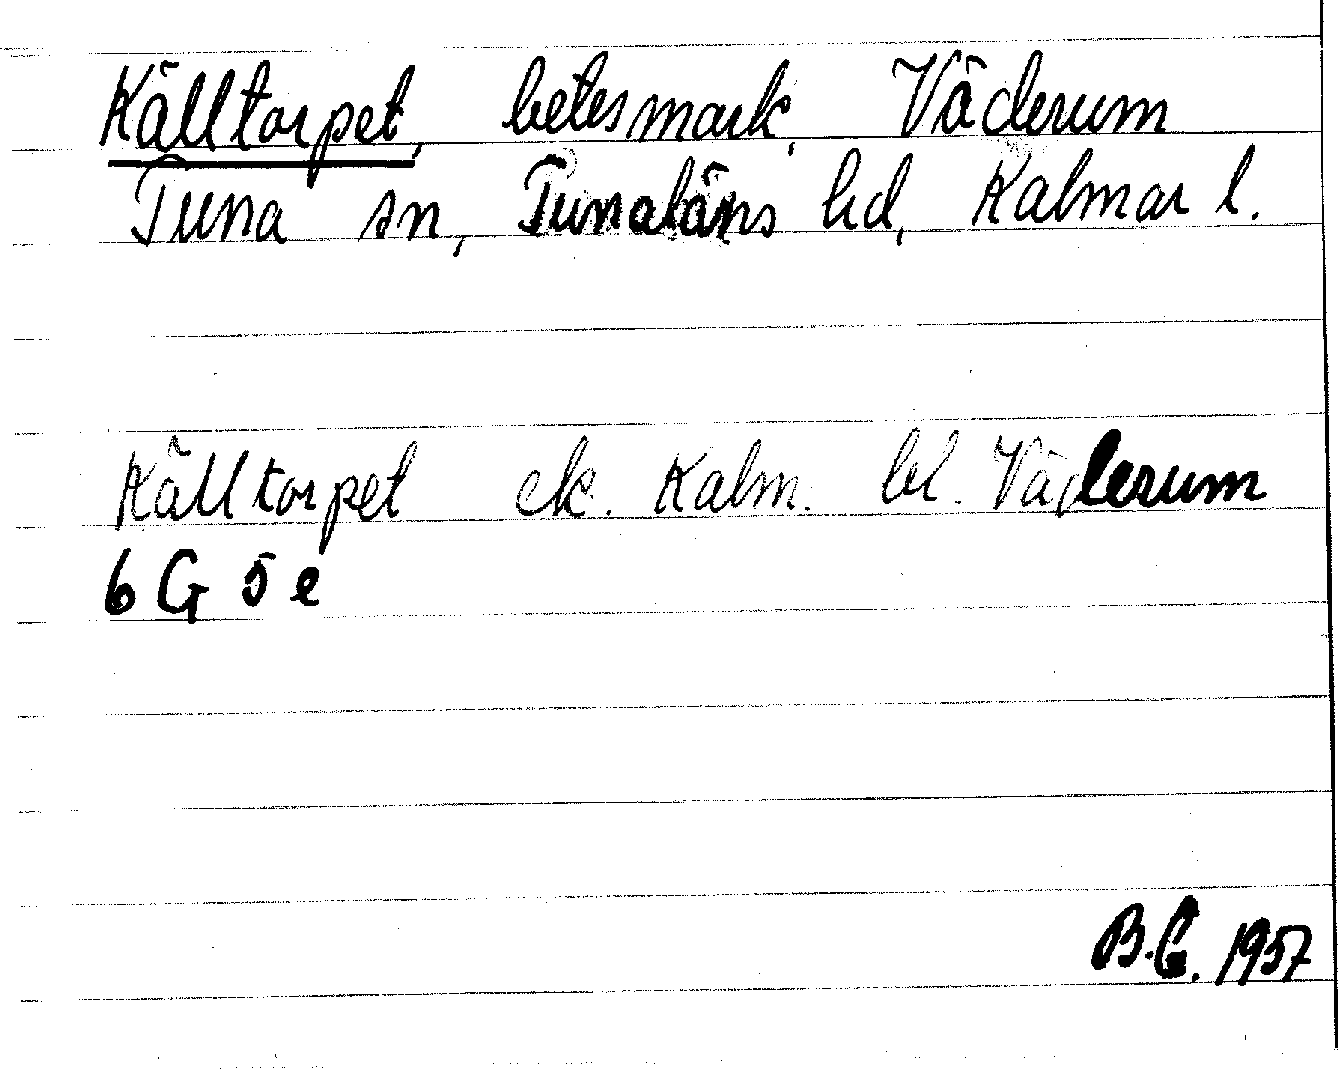 Källtorpet, betesmark, Väderum
Tuna sn, Tunaläns hd, Kalmar l.
Källtorpet ek. Kalm. bl. Väderum
6 G 5 e
B.G. 1957